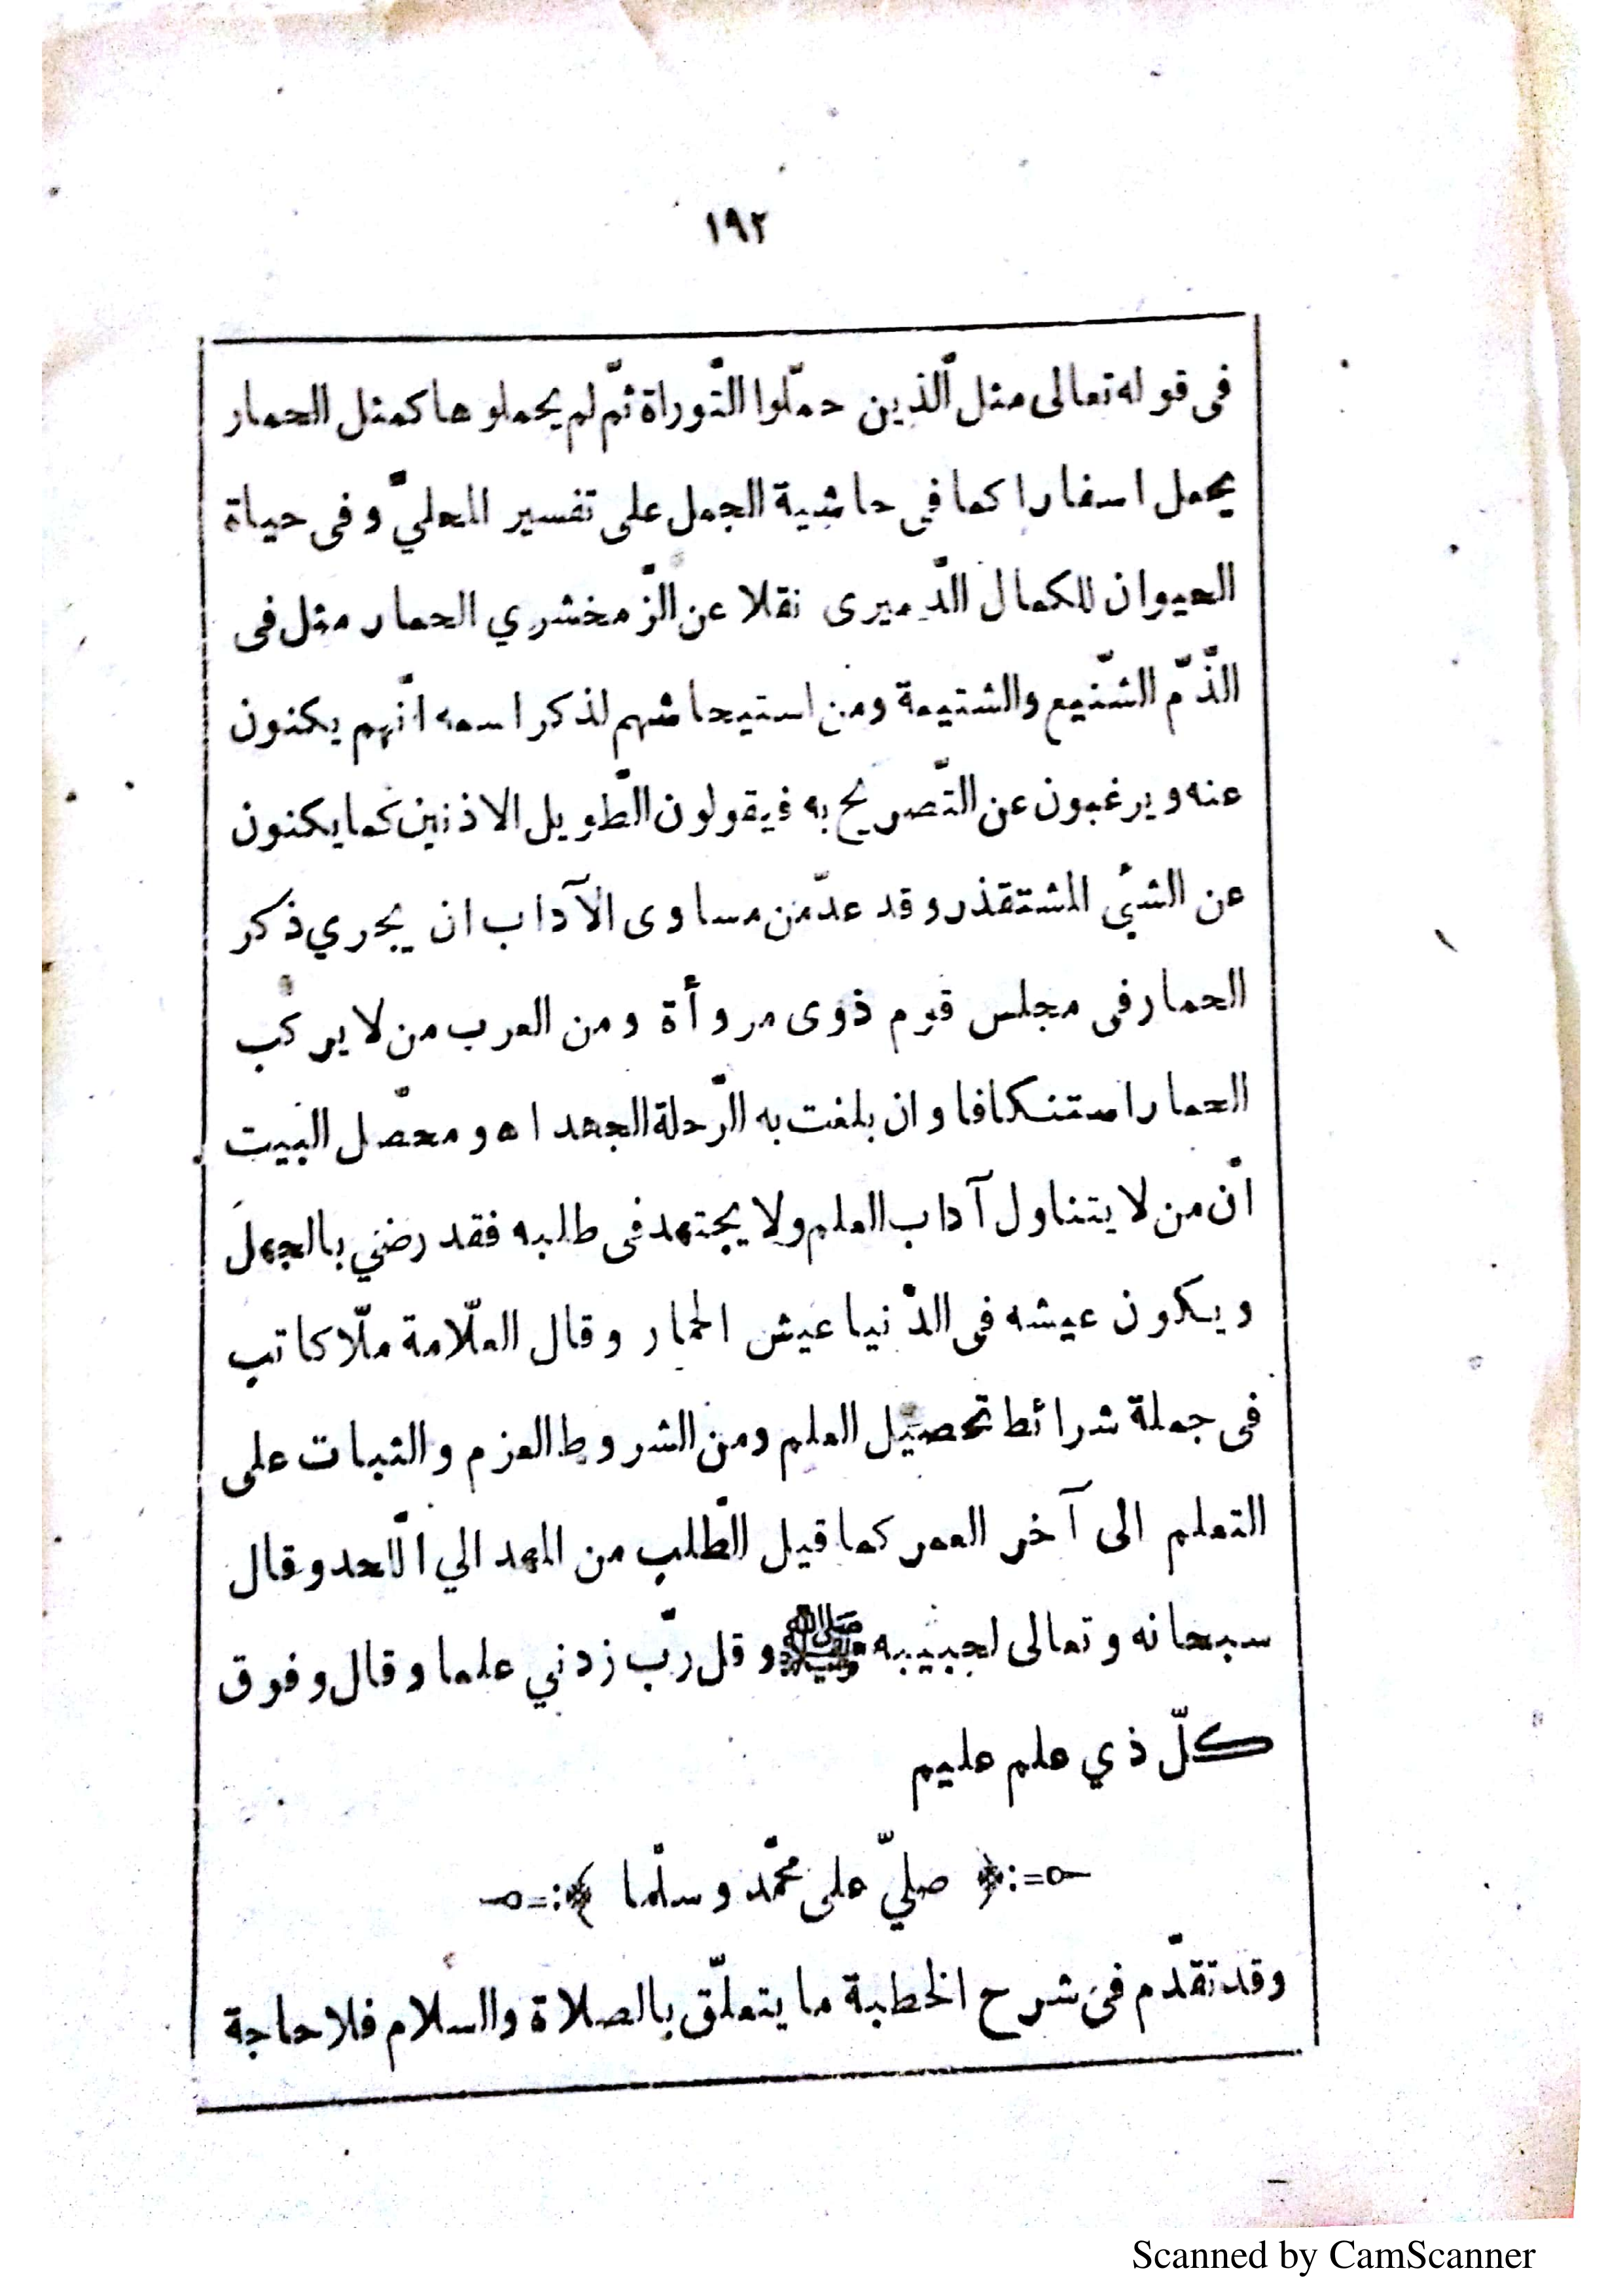 ١٩٢
فى قوله تعالى مثل الّذين حمّلوا التّوراة ثمّ لم يحملوها كمثل الحمار
يحمل اسفارا كما فى حاشية الجمل على تفسير المحليّ وفى حياة
الحيوان للكمال الدّميرى نقلا عن الزّمخشري الحمار مثل فى
الذّمّ الشّنيع والشتيمة ومن استيحاشهم لذكر اسمه انّهم يكنون
عنه ويرغبون عن التّصريح به فيقولون الطّويل الاذنين كما يكنون
عن الشئ المشتقذر وقد عدّ من مساوى الآداب ان يجري ذكر
الحمار فى مجلس قوم ذوى مروأة ومن العرب من لا يركب
الحمار استنكافا وان بلغت به الرّحلة الجهد اه ومحصّل البيت
انّ من لا يتناول آداب العلم ولا يجتهد فى طلبه فقد رضي بالجهل
ويكون عيشه فى الدّنيا عيش الحمار وقال العلّامة ملّا كاتب
فى جملة شرائط تحصيل العلم ومن الشروط العزم والثبات على
التعلم الى آخر العمر كما قيل الطّلب من المهد الي اللّحد وقال
سبحانه وتعالى لحبيبه ﷺ وقل ربّ زدني علما وقال وفوق
كلّ ذي علم عليم
صليّ على محمّد وسلّما
وقد تقدّم فى شرح الخطبة ما يتعلّق بالصلاة والسلام فلا حاجة
Scanned by CamScanner